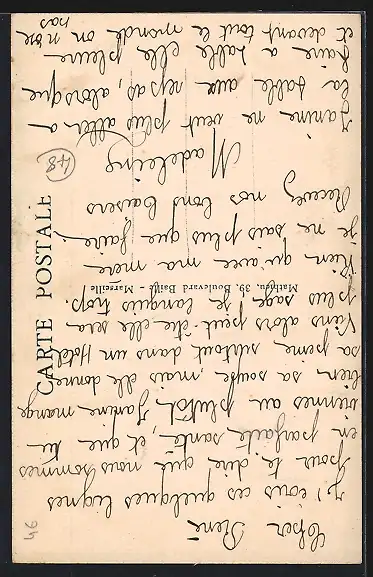 Cher
René
j'écris ces quelques lignes
pour te dire que nous sommes
en parfaite santé, et que tu
viennes au plutôt, Janine mange
bien sa soupe, mais elle donne
sa peine surtout dans un Hôtel
Viens alors peut être elle sera
plus sage. Je languis trop.
Rien qu'avec ma mère
je ne sais plus que faire
Recevez nos bons baisers
Madeleine
Janine ne veut plus aller a
la table aux repas, alors que
faire a table elle pleure
et devant tout le monde on n'ose
pas
CARTE POSTALE
39, Boulevard Baille - Marseille
48